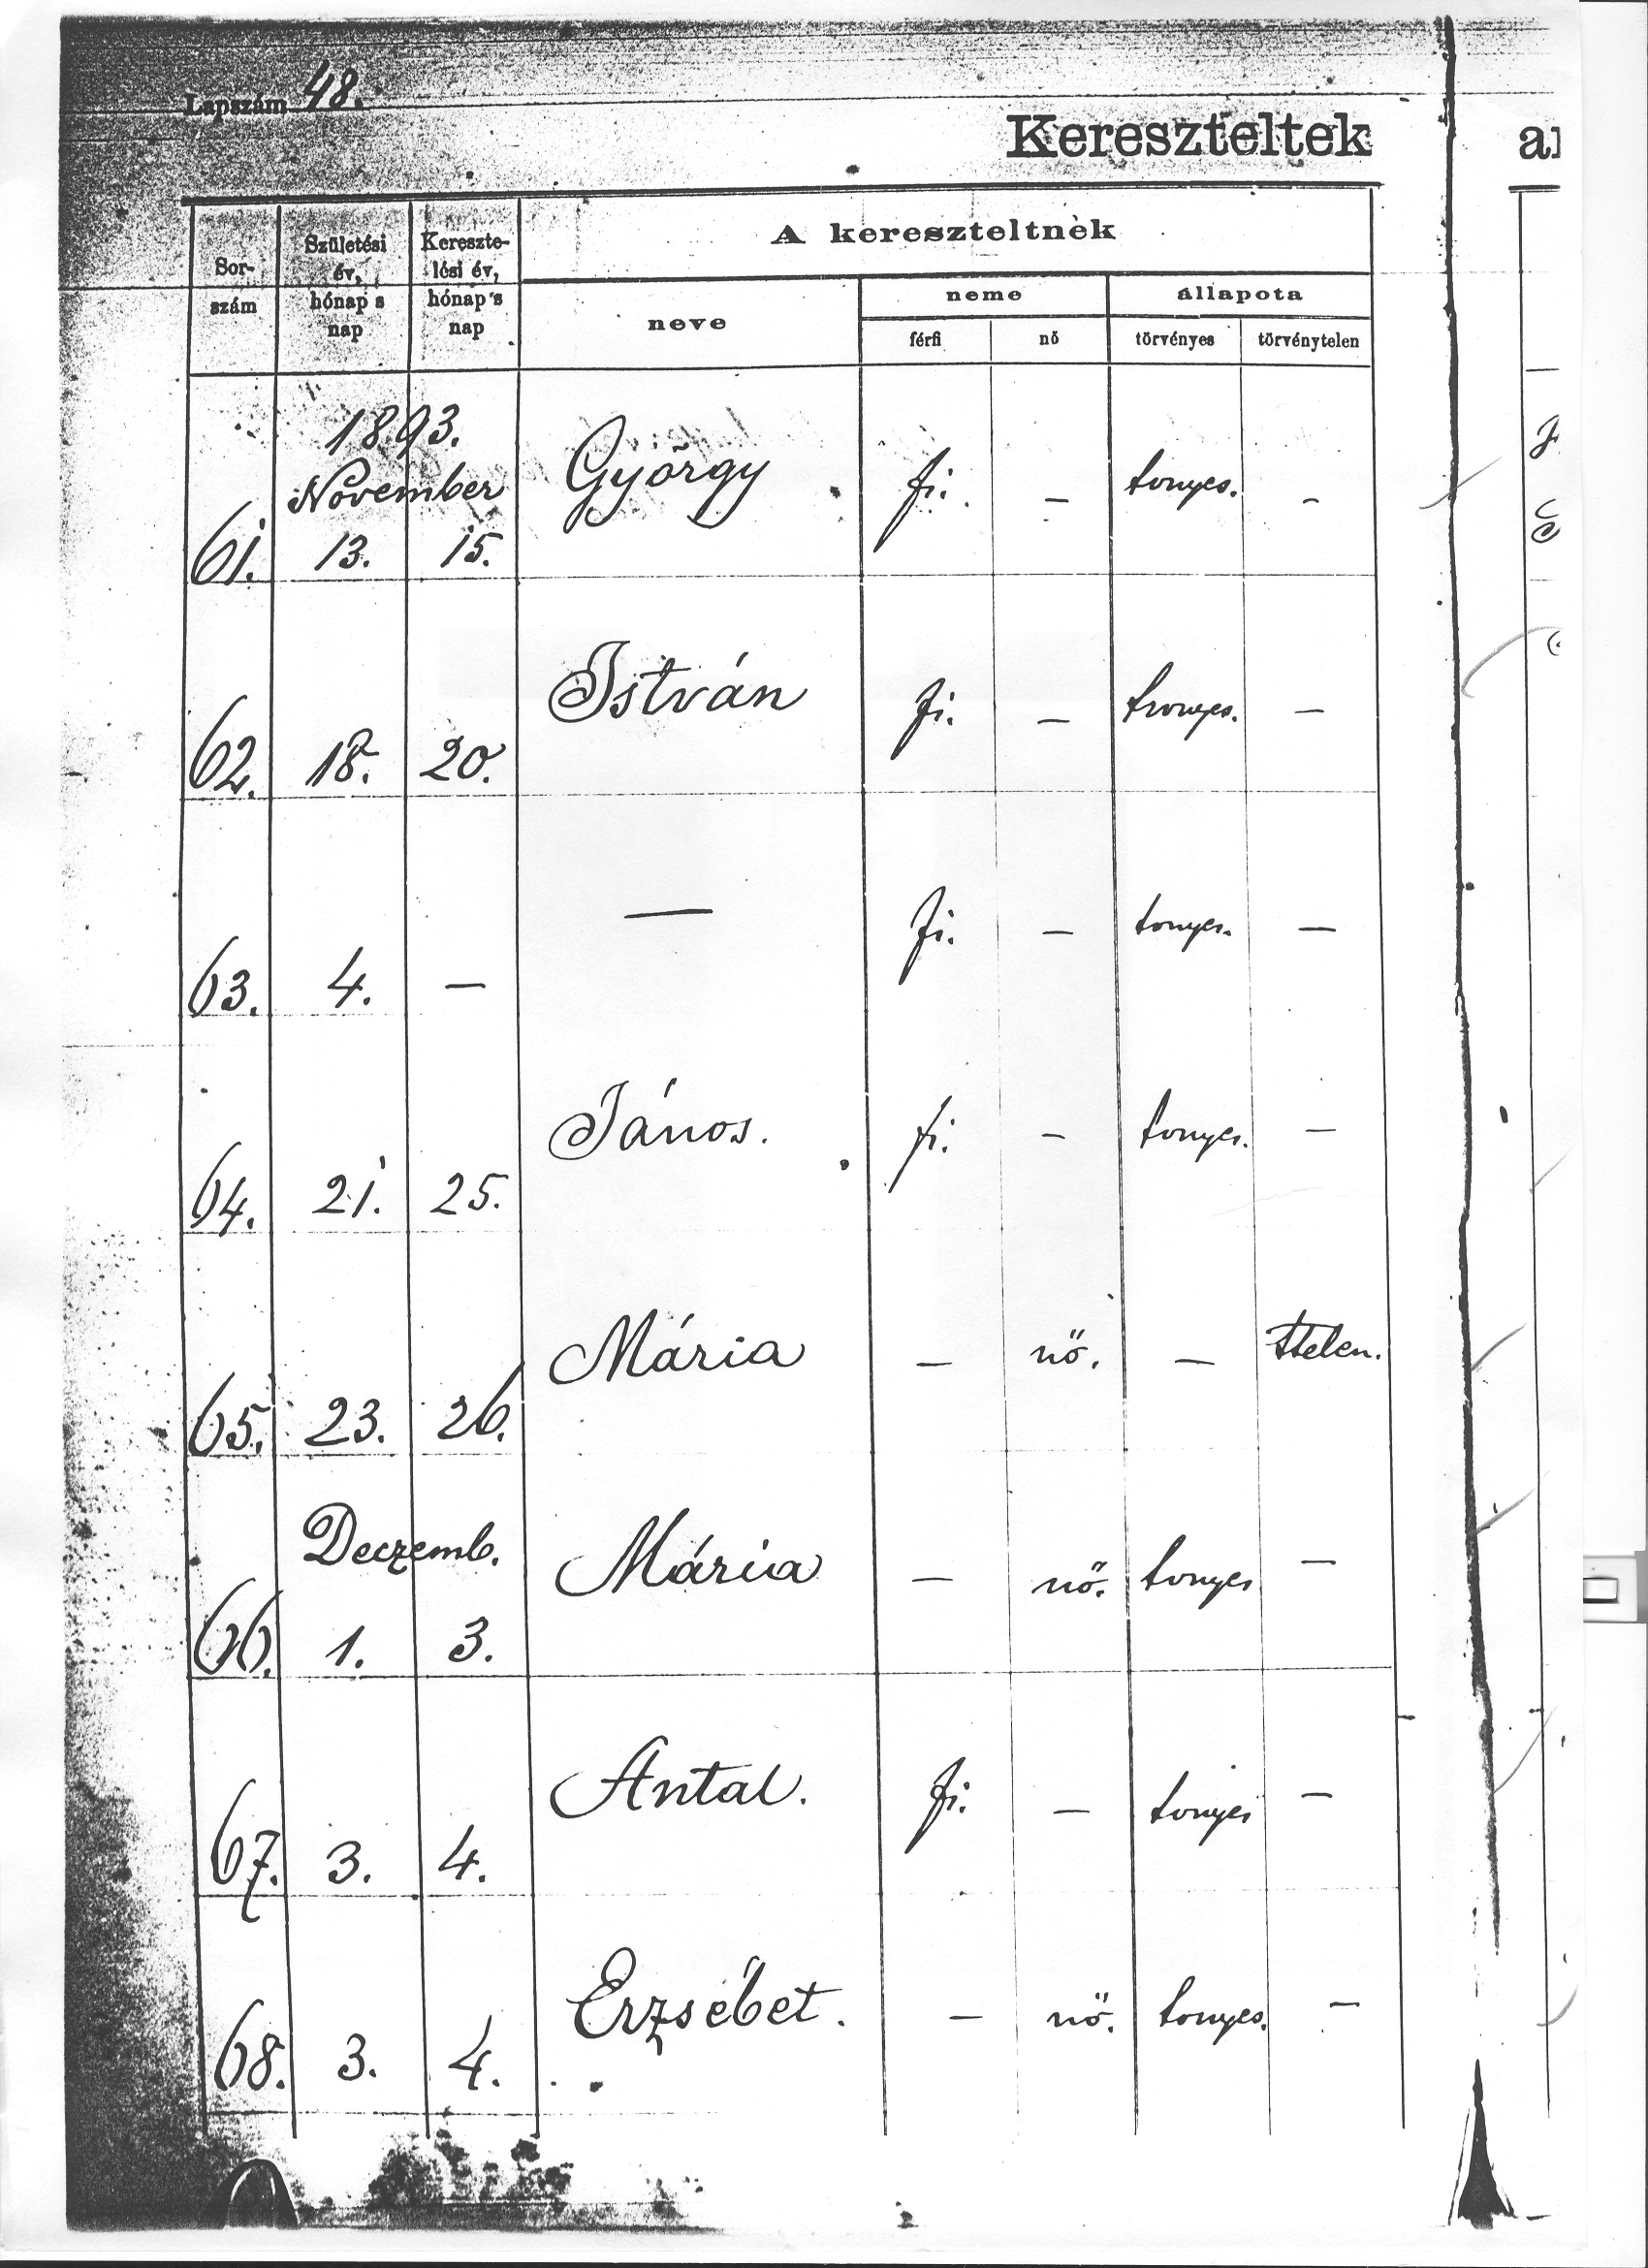 Lapszám 48.
Kereszteltek
Sor-
szám
Születési
év,
hónap s
nap
Keresztelési év,
hónap s
nap
A kereszteltnek
neve
neme
állapota
férfi nő törvényes törvénytelen
1893.
November
61. 13. 15. György fi. – tvnyes. –
62. 18. 20. István fi. – tvnyes. –
63. 4. – — fi. – tvnyes. –
64. 21. 25. János. fi. – tvnyes. –
65. 23. 26. Mária – nő. – ttelen.
Deczemb.
66. 1. 3. Mária – nő. tvnyes –
67. 3. 4. Antal. fi. – tvnyes –
68. 3. 4. Erzsébet. – nő. tvnyes. –